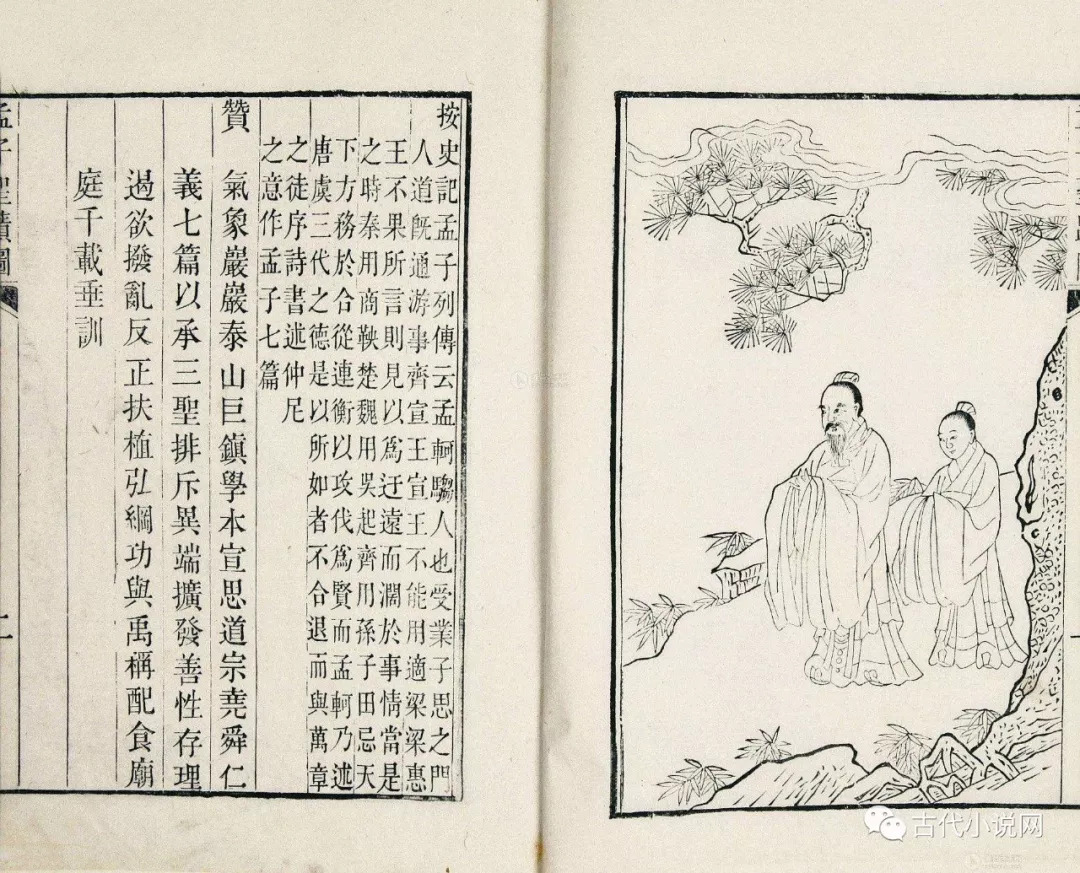 按史記孟子列傳云孟軻騶人也受業子思之門
人道既通游事齊宣王宣王不能用適梁梁惠
王不果所言則見以爲迂遠而濶於事情當是
之時秦用商鞅楚魏用吳起齊用孫子田忌天
下方務於合從連衡以攻伐爲賢而孟軻乃述
唐虞三代之德是以所如者不合退而與萬章
之徒序詩書述仲尼
之意作孟子七篇
贊 氣象巖巖泰山巨鎮學本宣思道宗堯舜仁
義七篇以承三聖排斥異端擴發善性存理
遏欲撥亂反正扶植弘綱功與禹稱配食廟
庭千載垂訓
孟子聖蹟圖
二
古代小说网